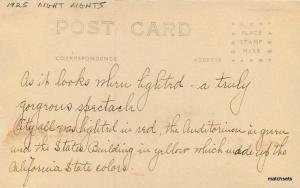 1925 NIGHT LIGHTS
POST CARD
PLACE
STAMP
HERE
CORRESPONDENCE
ADDRESS
As it looks when lighted - a truly
gorgrous spectacle
City all was lighted in red, the Auditorium in green
and the States Building in yellow which made up the
California State colors.
matchsets